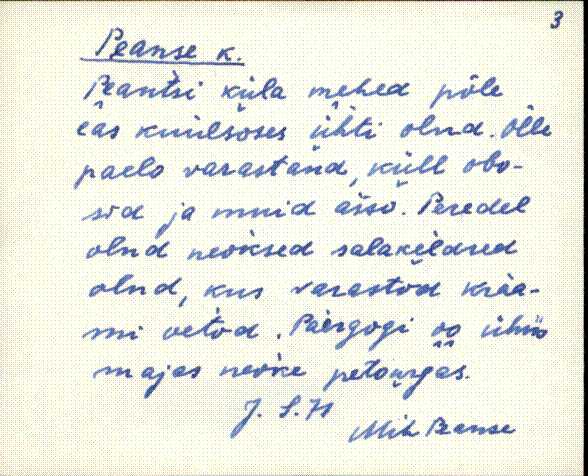 3
Peanse k.
Peantsi küla mehed põle
eas kuulsoses ühti olnd. Olle
paelo varastand, küll obo-
sid ja muid asso. Peredel
olnd neokesed salakeldred
olnd, kus varastod kraa-
mi oetod. Paergogi oo ühes
majas neoke petaurgas.
J. S. H
Mih. Peanse